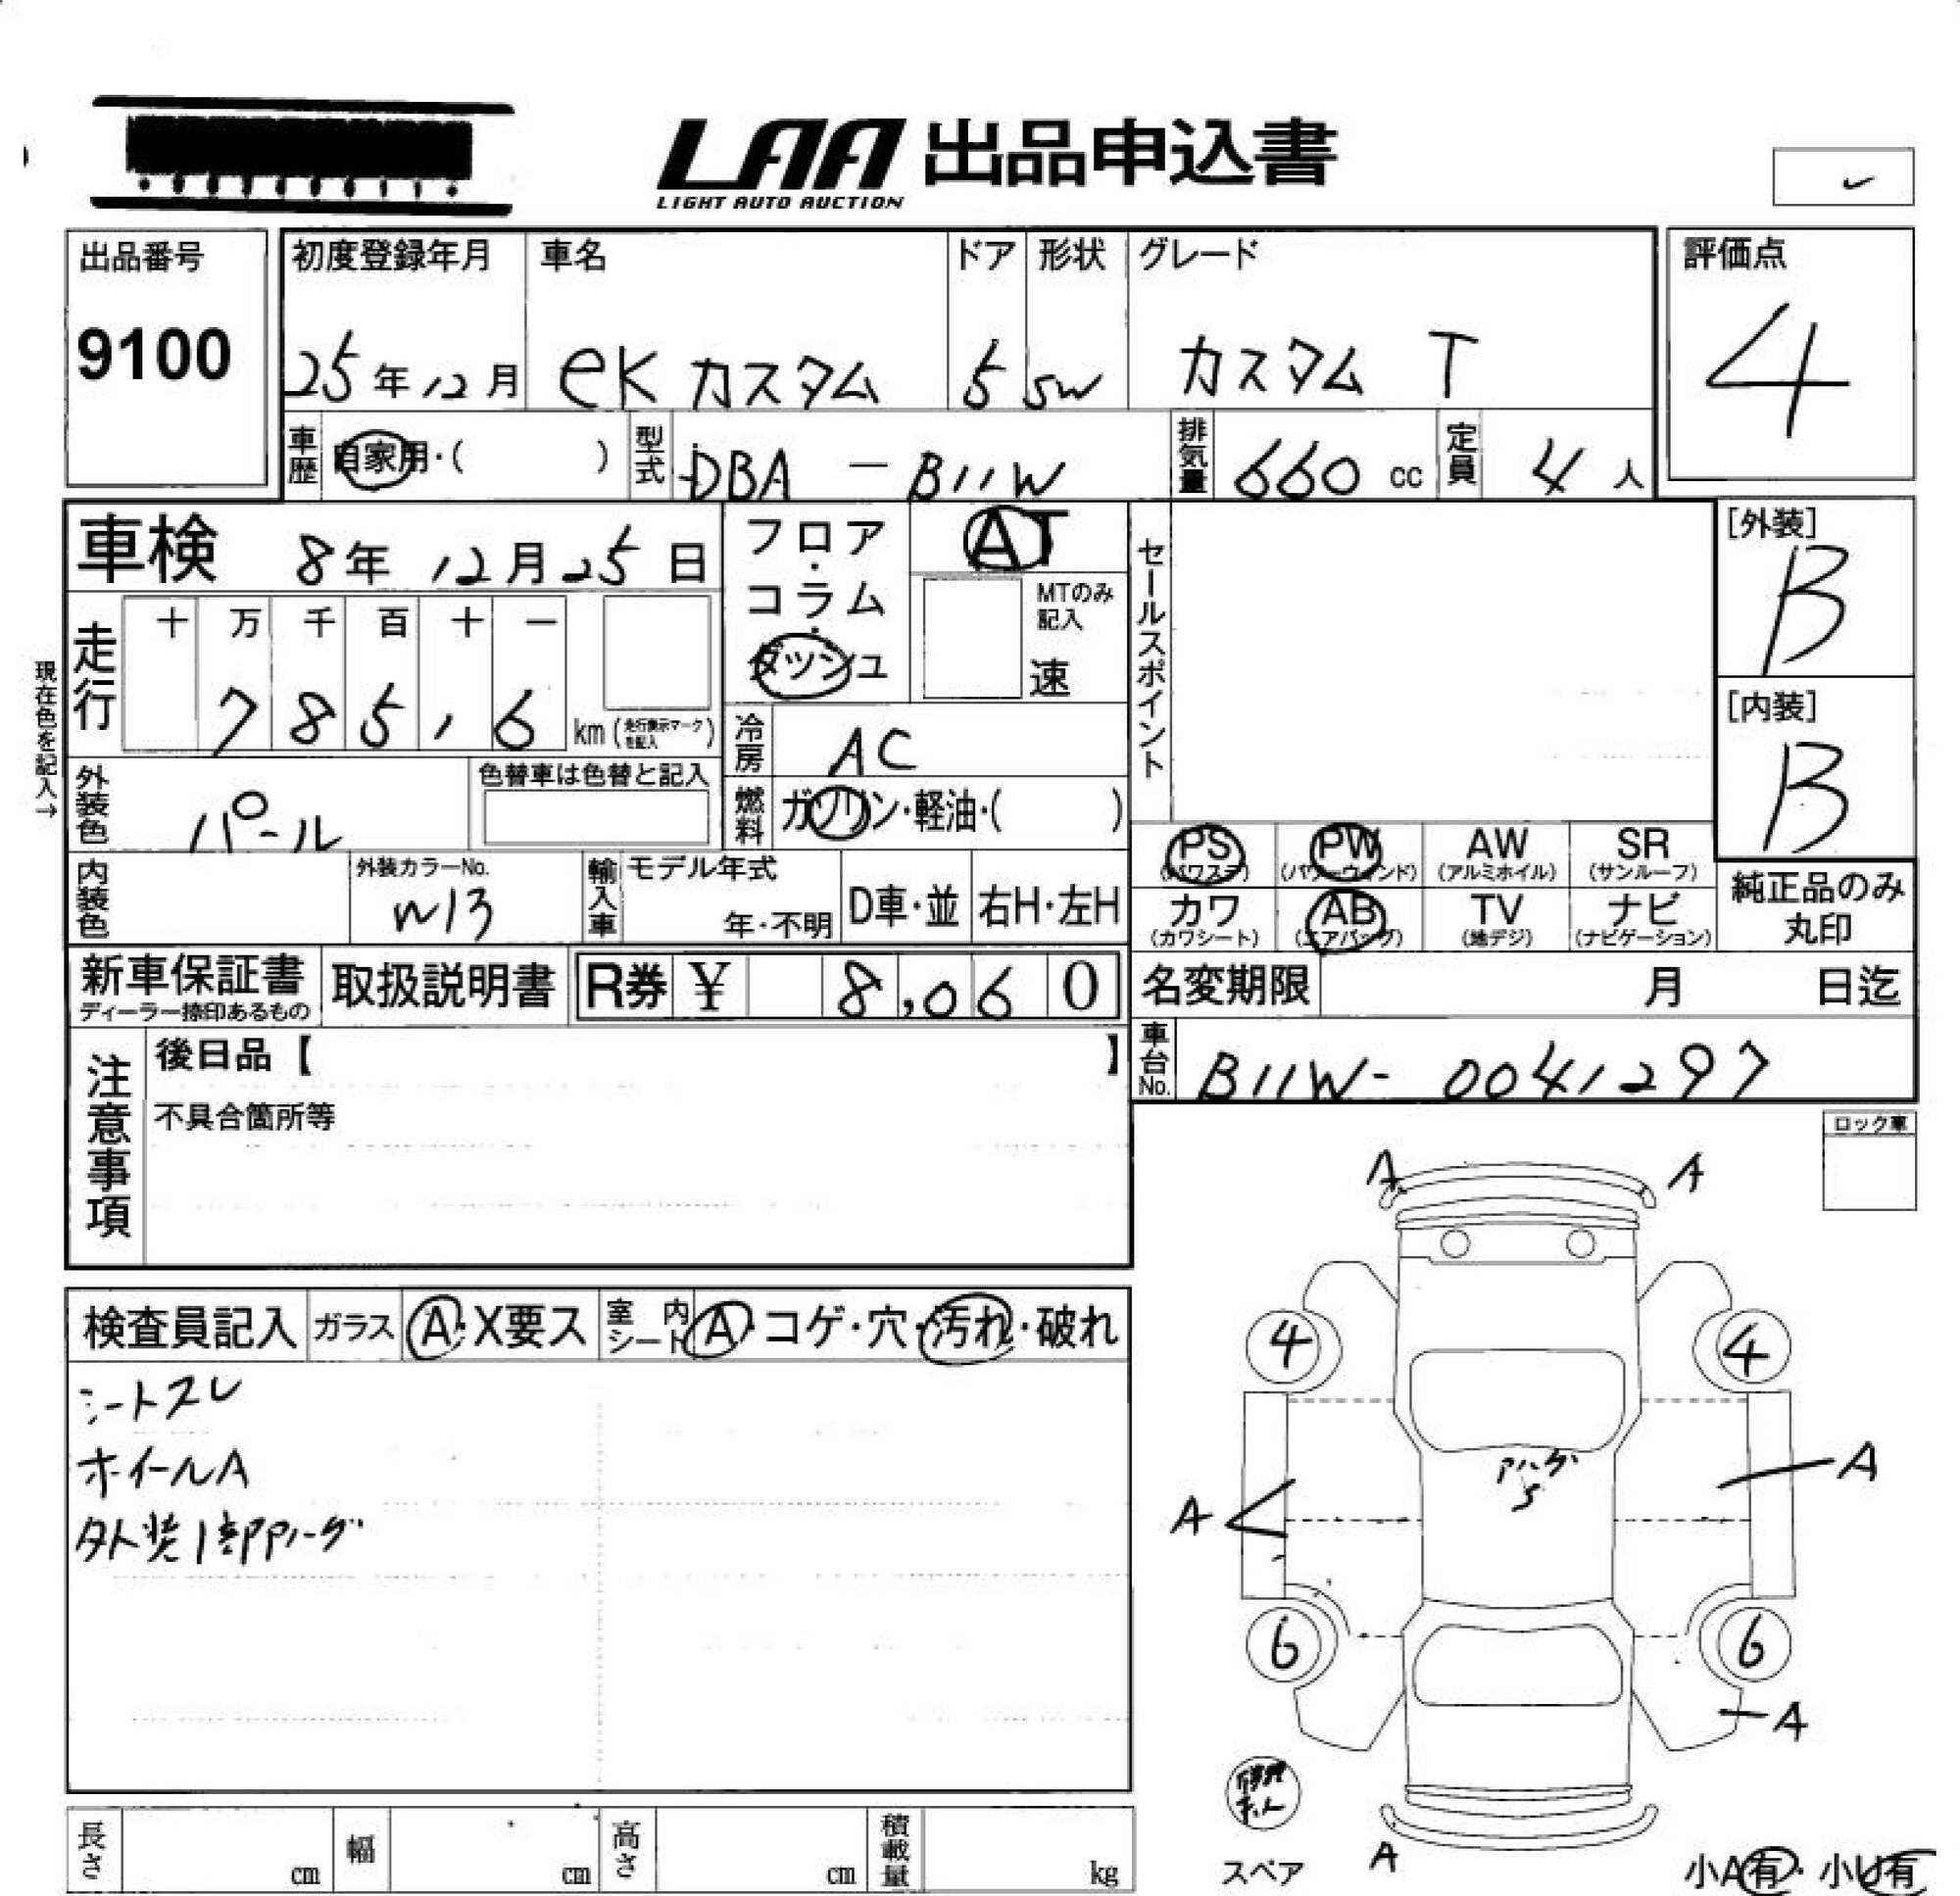 LAA 出品申込書
LIGHT AUTO AUCTION
出品番号
9100
初度登録年月
25年12月
車名
eKカスタム
ドア
5
形状
SW
グレード
カスタム T
評価点
4
車歴
自家用・( )
型式
DBA-B11W
排気量
660 cc
定員
4 人
車検 8年12月25日
フロア・コラム・ダッシュ
AT
MTのみ記入
速
セールスポイント
[外装]
B
[内装]
B
現在色を記入→
走行
十 万 千 百 十 一
7 8 5 1 6 km (走行表示マークを記入)
冷房
AC
外装色
パール
色替車は色替と記入
燃料
ガソリン・軽油・( )
内装色
外装カラーNo.
W13
輸入車
モデル年式
年・不明
D車・並
右H・左H
PS (パワステ)
PW (パワーウィンド)
AW (アルミホイル)
SR (サンルーフ)
カワ (カワシート)
AB (エアバッグ)
TV (地デジ)
ナビ (ナビゲーション)
純正品のみ丸印
新車保証書
ディーラー捺印あるもの
取扱説明書
R券 ¥ 8,060
名変期限 月 日迄
車台No.
B11W-0041297
注意事項
後日品【 】
不具合箇所等
ロック車
検査員記入
ガラス
A・X要ス
室内シート
A・コゲ・穴・汚れ・破れ
シートスレ
ホイールA
外装1部Pハーゲ
A A
4 4
Pハーゲ
S
A A
6 6
A
修理キット
スペア
A
小A有・小U有
長さ cm
幅 cm
高さ cm
積載量 kg